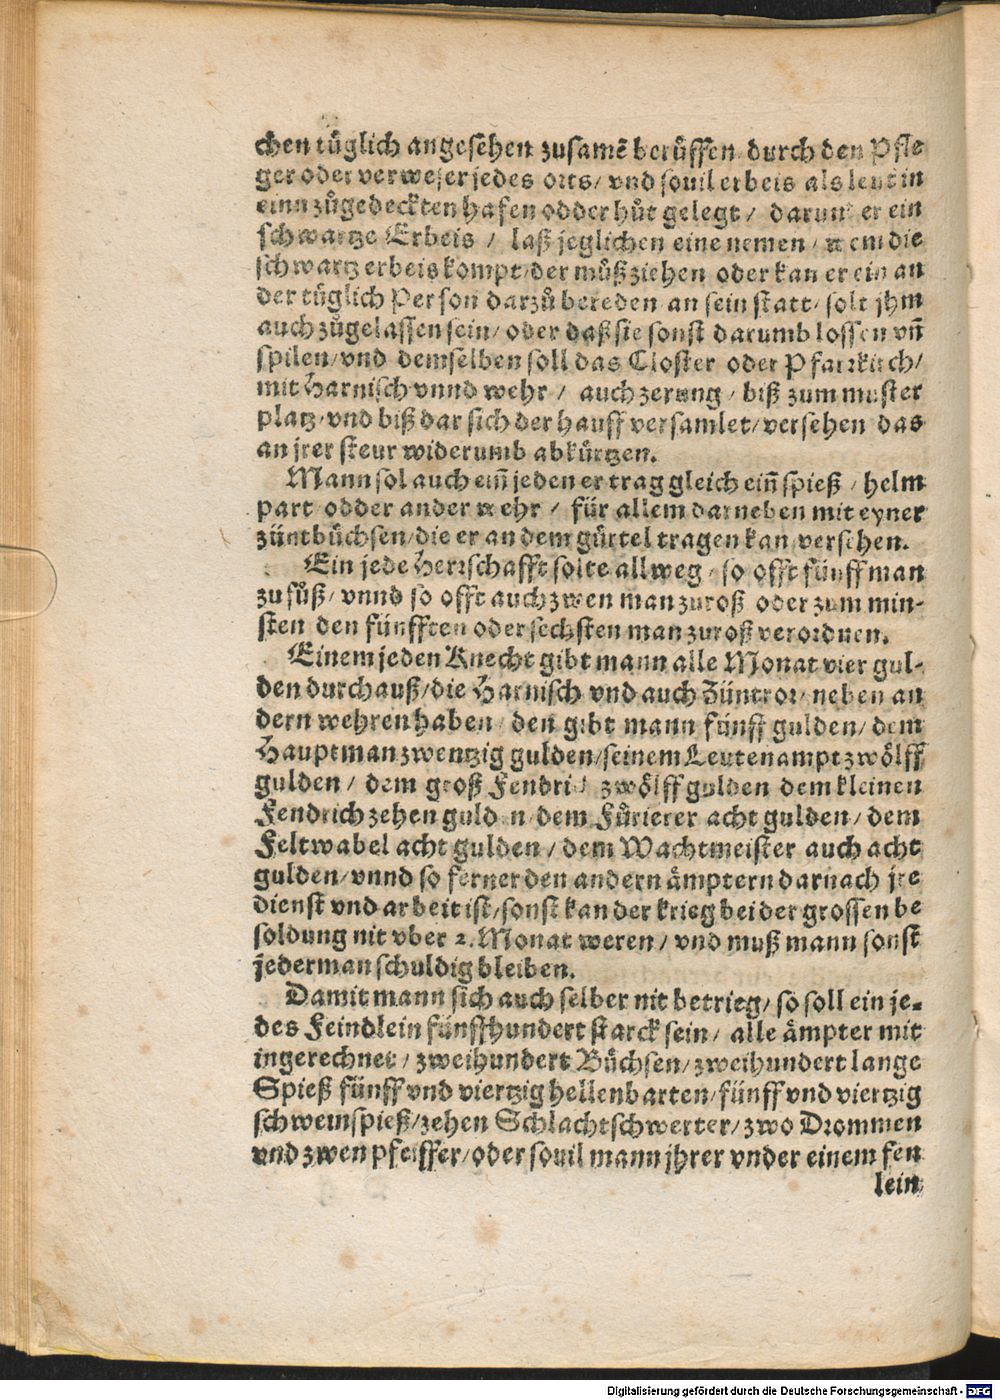 chen tüglich angesehen zusamē berüffen durch den Pfle
ger oder verweser jedes orts/ vnd souil erbeis als leut in
einn zůgedeckten hafen odder hůt gelegt/ darunder ein
schwartze Erbeis / laß jeglichen eine nemen / wem die
schwartz erbeis kompt/ der můß ziehen oder kan er ein an
der tüglich Person darzů bereden an sein statt/ solt jhm
auch zůgelassen sein/ oder daß sie sonst darumb lossen vñ
spilen/ vnd demselben soll das Closter oder Pfarrkirch/
mit Harnisch vnnd wehr / auch zerung / biß zum muster
platz/ vnd biß dar sich der hauff versamlet/ versehen das
an jrer steur widerumb abkürtzen.
Mann sol auch eiñ jeden er trag gleich eiñ spieß / helm
part odder ander wehr / für allem darneben mit eyner
züntbüchsen/ die er an dem gürtel tragen kan versehen.
Ein jede Herrschafft solte allweg / so offt fünff man
zu fůß/ vnnd so offt auch zwen man zu roß oder zum min-
sten den fünfften oder sechsten man zu roß verordnen.
Einem jeden Knecht gibt mann alle Monat vier gul-
den durchauß/ die Harnisch vnd auch Züntror/ neben an
dern wehren haben/ den gibt mann fünff gulden/ dem
Hauptman zwentzig gulden/ seinem Leutenampt zwölff
gulden / dem groß Fendrich zwölff gulden dem kleinen
Fendrich zehen gulden/ dem Fürierer acht gulden/ dem
Feltwabel acht gulden / dem Wachtmeister auch acht
gulden/ vnnd so ferner den andern ämptern darnach jre
dienst vnd arbeit ist/ sonst kan der krieg bei der grossen be
soldung nit vber 2. Monat weren/ vnd muß mann sonst
jederman schuldig bleiben.
Damit mann sich auch selber nit betrieg/ so soll ein je-
des Feindlein fünffhundert starck sein/ alle ämpter mit
ingerechnet / zweihundert Büchsen/ zweihundert lange
Spieß fünff vnd viertzig hellenbarten/ fünff vnd viertzig
schweinspieß/ zehen Schlachtschwerter/ zwo Drommen
vnd zwen pfeiffer/ oder souil mann jhrer vnder einem fen
lein
Digitalisierung gefördert durch die Deutsche Forschungsgemeinschaft - DFG